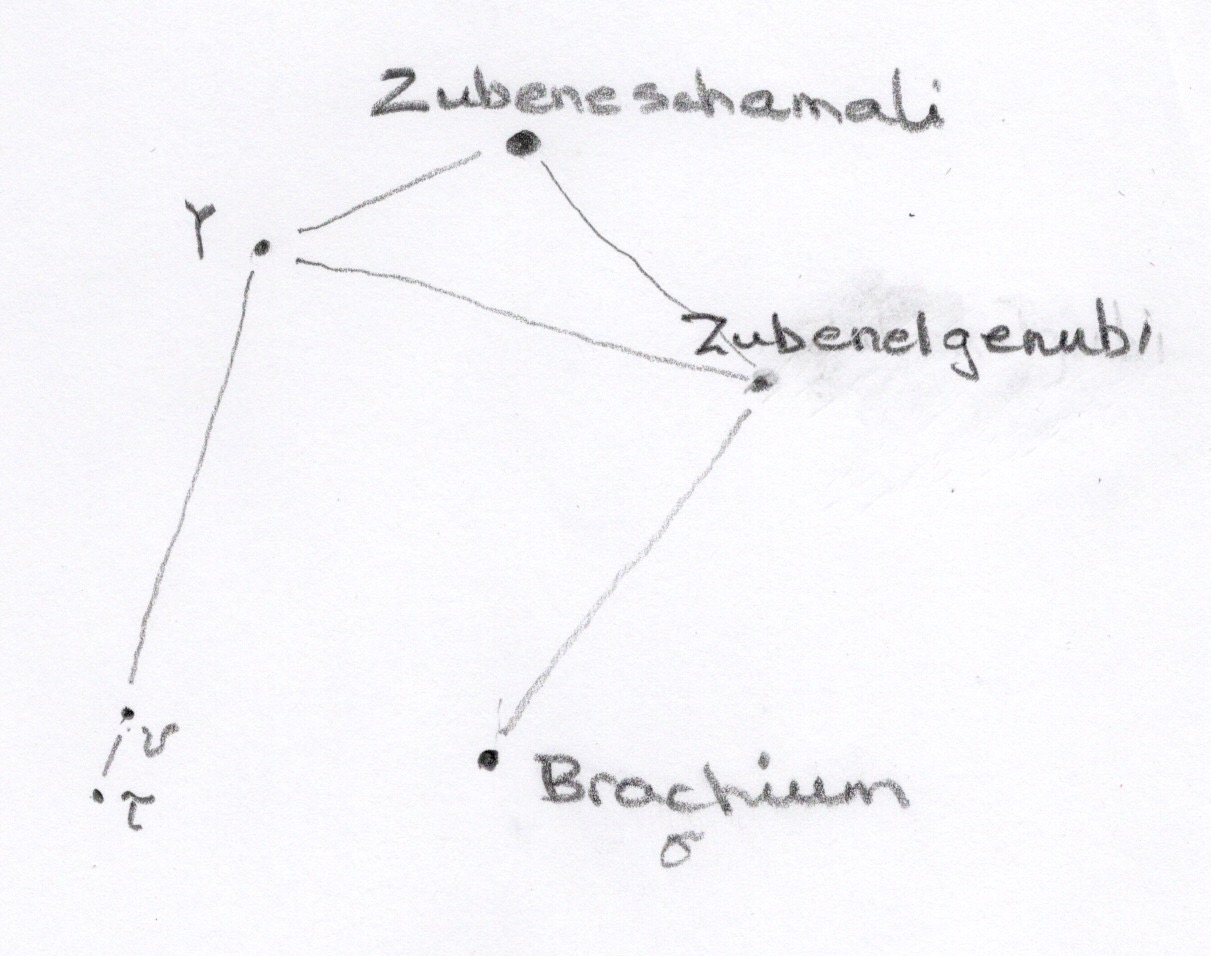 Zubeneschamali
γ
Zubenelgenubi
υ
τ
Brachium
σ